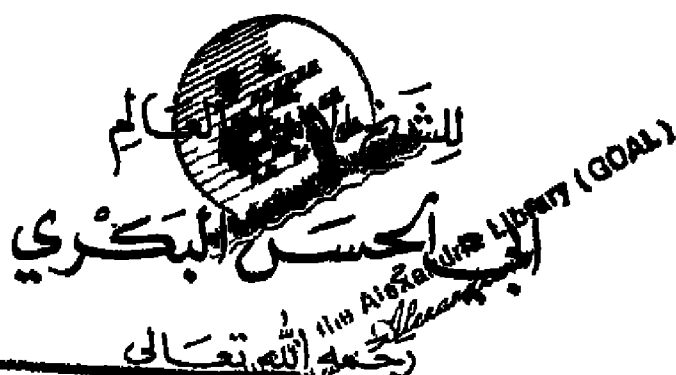 للشيخ العالم
أبي الحسن البكري
رحمه الله تعالى
the Alexandria Library (GOAL)